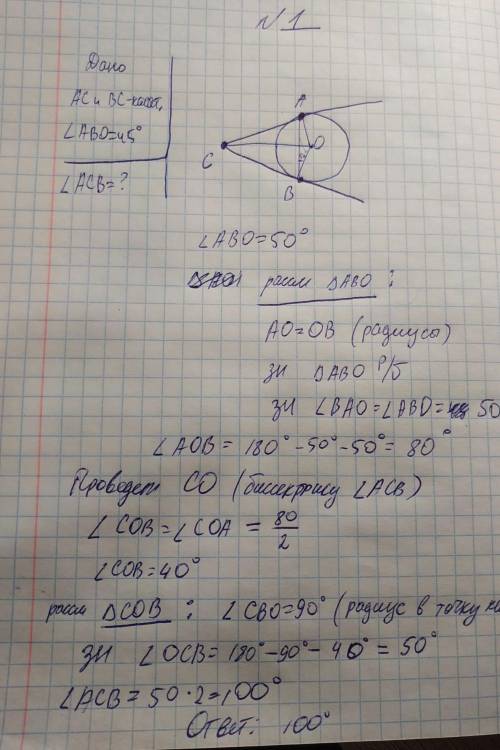 №1
Дано
AC и BC-касат.
∠ABO=45°
∠ACB=?
A
O
C
B
∠ABO=50°
рассм ΔABO :
AO=OB (радиусы)
зн ΔABO р/б
зн ∠BAO=∠ABO= 50
∠AOB= 180°-50°-50°= 80°
Проведем CO (биссектрису ∠ACB)
∠COB=∠COA = 80/2
∠COB=40°
рассм ΔCOB : ∠CBO=90° (радиус в точку
зн ∠OCB= 180°-90°- 40° = 50°
∠ACB= 50·2=100°
Ответ: 100°